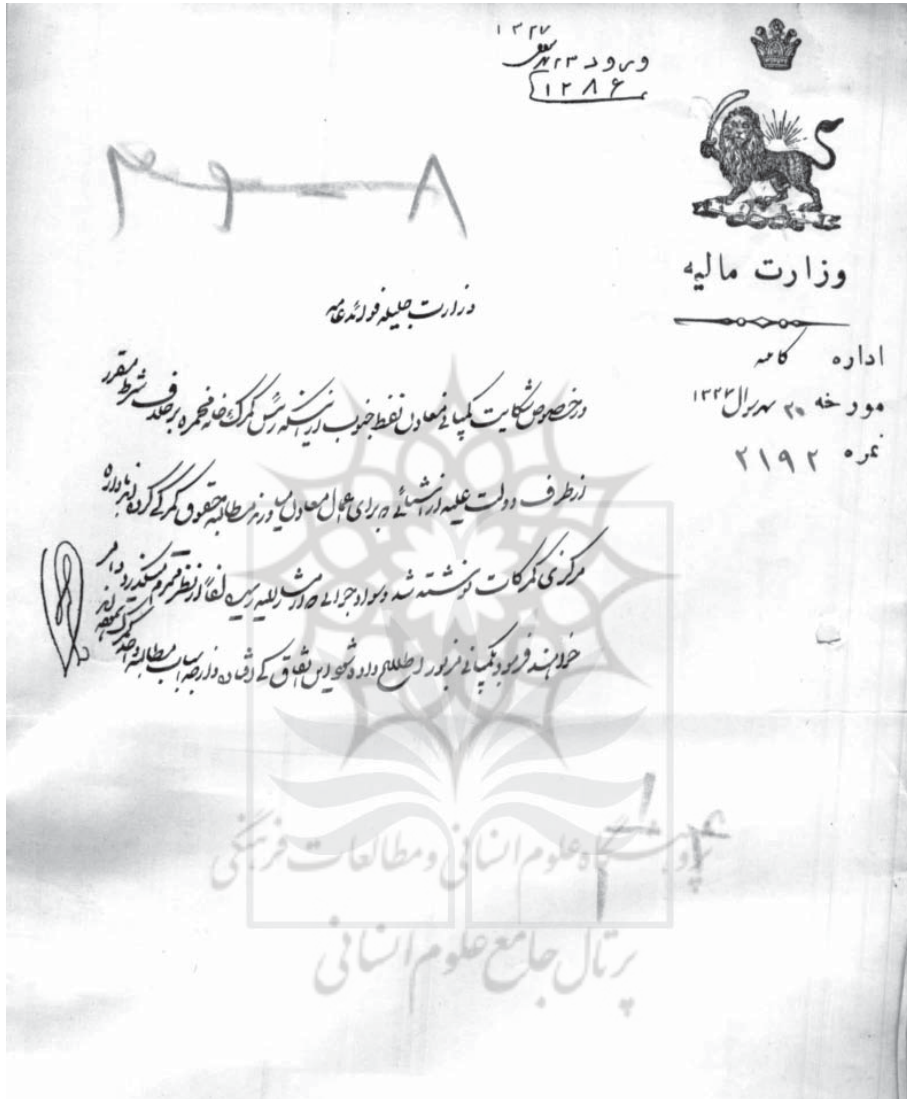 ۱۳۲۷
ورود ۲۳
۱۲۸۶
وزارت مالیه
اداره کامه
مورخه ۲۰ شوال ۱۳۲۷
نمره ۲۱۹۲
وزارت جلیله فوائد عامه
در خصوص شکایت کمپانی معادن نفط جنوب از اینکه رئیس گمرک خانه محمره برخلاف شرط مقرر
از طرف دولت علیه از اشیائی که برای اعمال معادن میاورند مطالبه حقوق گمرکی کرده اند باداره
مرکزی گمرکات نوشته شد و سواد جوابی که از مشارالیه رسیده لفاً از نظر محترم میگذرد
خواهند فرمود بکمپانی مزبور اطلاع داده شود این اتفاق که افتاده
پژوهشگاه علوم انسانی و مطالعات فرهنگی
پرتال جامع علوم انسانی